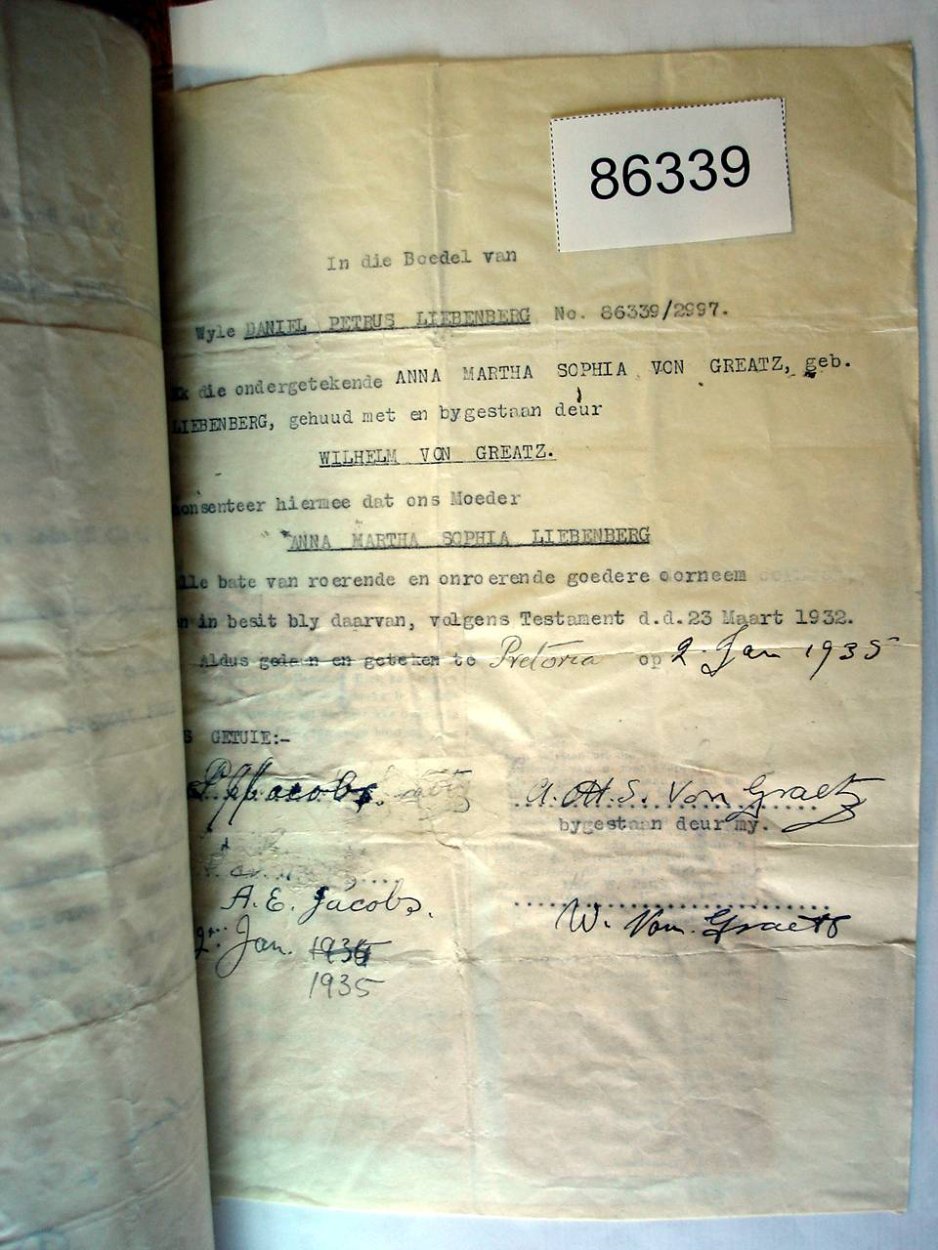 86339
In die Boedel van
Wyle DANIEL PETRUS LIEBENBERG No. 86339/2997.
Ek die ondergetekende ANNA MARTHA SOPHIA VON GREATZ, geb.
LIEBENBERG, gehuud met en bygestaan deur
WILHELM VON GREATZ.
konsenteer hiermee dat ons Moeder
ANNA MARTHA SOPHIA LIEBENBERG
alle bate van roerende en onroerende goedere oorneem
en in besit bly daarvan, volgens Testament d.d. 23 Maart 1932.
Aldus gedaan en geteken te Pretoria op 2 Jan 1935
S GETUIE:-
Jacobs. A. M. S. Von Graetz
bygestaan deur my.
A. E. Jacobs.
W. Von. Graetz
2 Jan. 1935